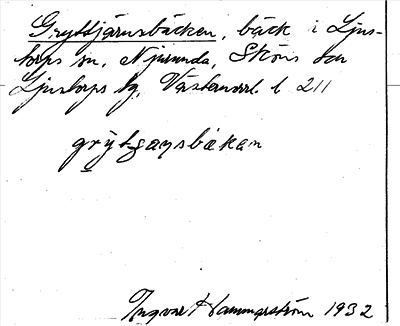 Gryttjärnsbäcken, bäck i Ljus-
torps sn, Njurunda, Sköns och
Ljustorps tg, Västernorrl. l 211
grytjansbäkan
Ingvar Hammarström 1932